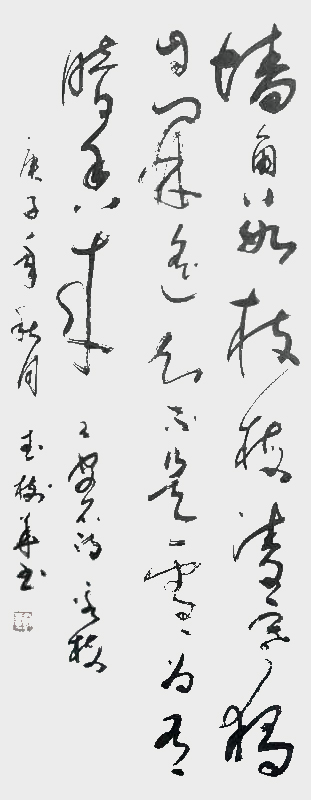 墙角数枝梅凌寒独
自開遥知不是雪为有
暗香来 王安石 咏梅
庚子年秋月 书